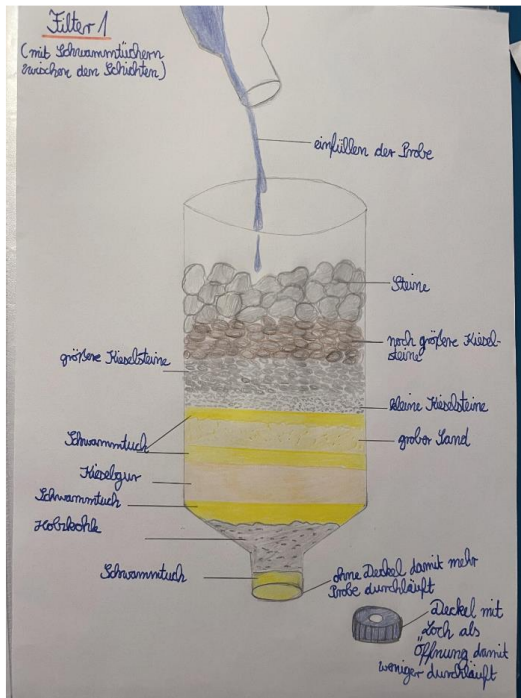 Filter 1
(mit Schwammtüchern
zwischen den Schichten)
einfüllen der Probe
Steine
noch größere Kiesel-
steine
größere Kieselsteine
kleine Kieselsteine
Schwammtuch
grober Sand
Kieselgur
Schwammtuch
Holzkohle
Schwammtuch
ohne Deckel damit mehr
Probe durchläuft
Deckel mit
Loch als
Öffnung damit
weniger durchläuft